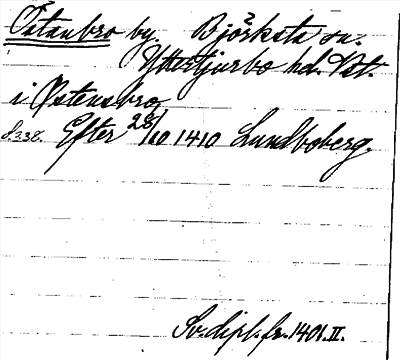 Östanbro by. Björksta sn.
Yttertjurbo hd. Vst.
i Østensbro
8338. Efter 28/10 1410 Lundboberg.
Sv. dipl. fr. 1401. II.